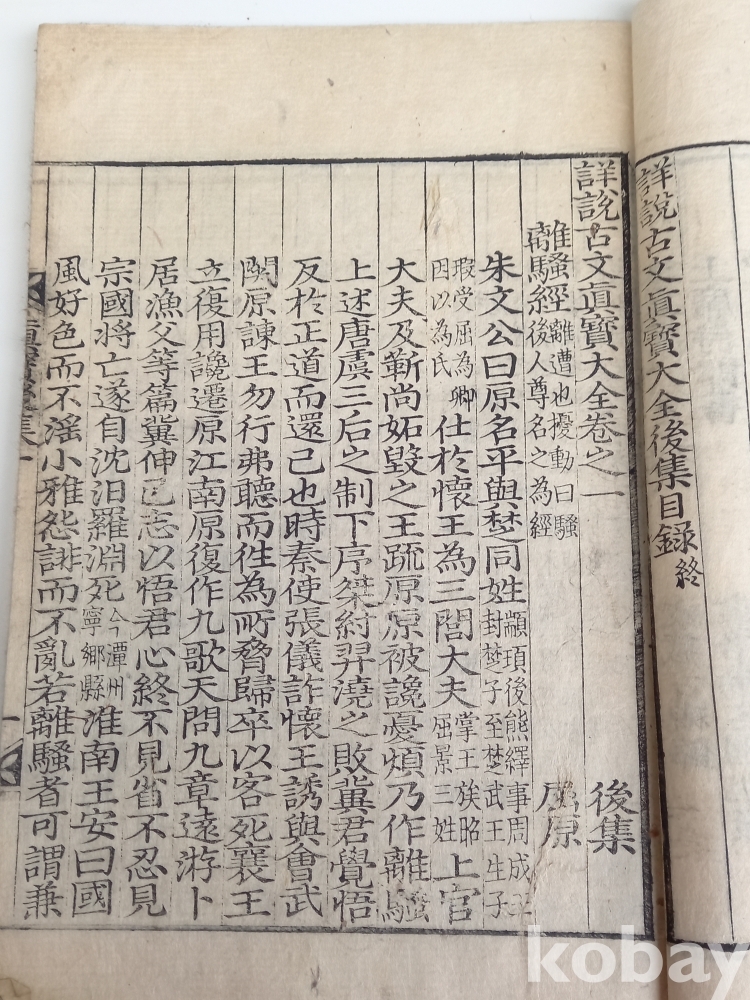 詳說古文眞寶大全後集目錄終
詳說古文眞寶大全卷之一 後集
離騷經 離遭也擾動曰騷後人尊名之為經 屈原
朱文公曰原名平與楚同姓 顓頊後熊繹事周成王封楚子至楚武王生子
瑕受屈為卿因以為氏 仕於懷王為三閭大夫 掌王族昭屈景三姓 上官
大夫及靳尚妬毀之王疏原原被讒憂煩乃作離騷
上述唐虞三后之制下序桀紂羿澆之敗冀君覺悟
反於正道而還己也時秦使張儀詐懷王誘與會武
関原諫王勿行弗聽而徃為所脅歸卒以客死襄王
立復用讒遷原江南原復作九歌天問九章遠游卜
居漁父等篇冀伸已志以悟君心終不見省不忍見
宗國將亡遂自沈汨羅淵死 今潭州寧鄉縣 淮南王安曰國
風好色而不滛小雅怨誹而不亂若離騷者可謂兼
眞寶後集一
一
kobay